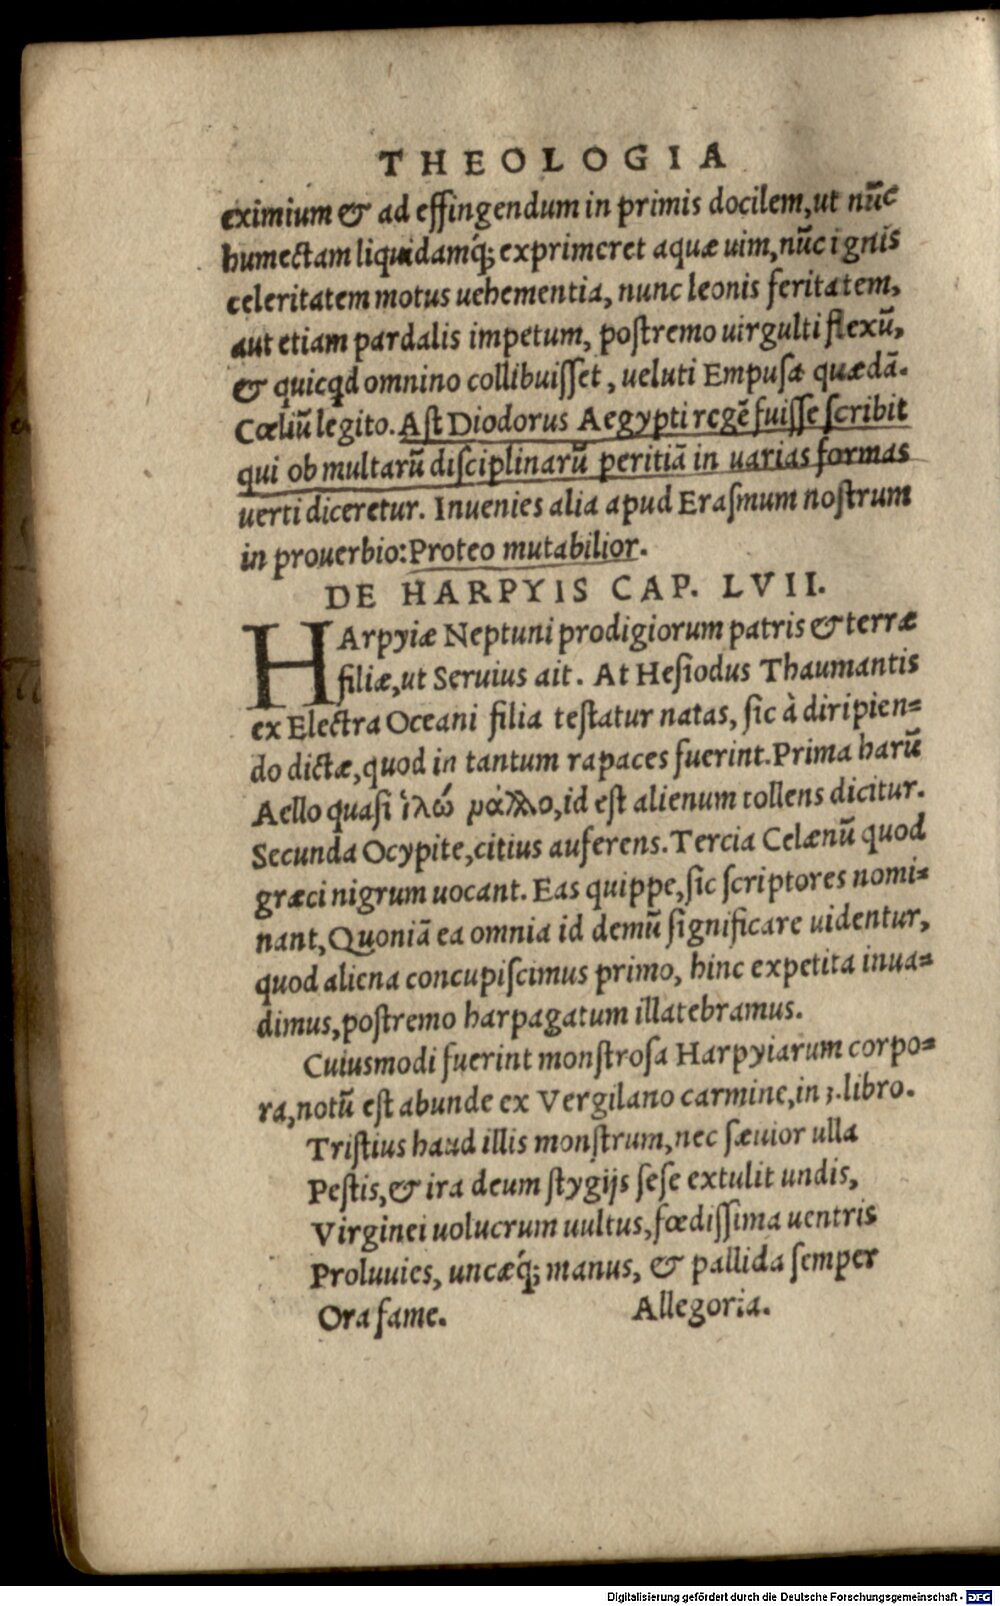 THEOLOGIA
eximium & ad effingendum in primis docilem, ut nūc
humectam liquidamq́; exprimeret aquæ uim, nūc ignis
celeritatem motus uehementia, nunc leonis feritatem,
aut etiam pardalis impetum, poſtremo uirgulti flexū,
& quicqd omnino collibuiſſet, ueluti Empuſa quædā.
Cœliū legito. Aſt Diodorus Aegypti regē fuiſſe ſcribit
qui ob multarū diſciplinarū peritiā in uarias formas
uerti diceretur. Inuenies alia apud Eraſmum noſtrum
in prouerbio: Proteo mutabilior.
DE HARPYIS CAP. LVII.
HArpyiæ Neptuni prodigiorum patris & terræ
filiæ, ut Seruius ait. At Heſiodus Thaumantis
ex Electra Oceani filia teſtatur natas, ſic à diripien=
do dictæ, quod in tantum rapaces fuerint. Prima harū
Aello quaſi , id eſt alienum tollens dicitur.
Secunda Ocypite, citius auferens. Tercia Celænū quod
græci nigrum uocant. Eas quippe, ſic ſcriptores nomi=
nant, Quoniā ea omnia id demū ſignificare uidentur,
quod aliena concupiſcimus primo, hinc expetita inua=
dimus, poſtremo harpagatum illatebramus.
Cuiusmodi fuerint monſtroſa Harpyiarum corpo=
ra, notū eſt abunde ex Vergilano carmine, in 3. libro.
Triſtius haud illis monſtrum, nec ſæuior ulla
Peſtis, & ira deum ſtygijs ſeſe extulit undis,
Virginei uolucrum uultus, fœdiſſima uentris
Proluuies, uncæq́; manus, & pallida ſemper
Ora fame. Allegoria.
Digitalisierung gefördert durch die Deutsche Forschungsgemeinschaft - DFG